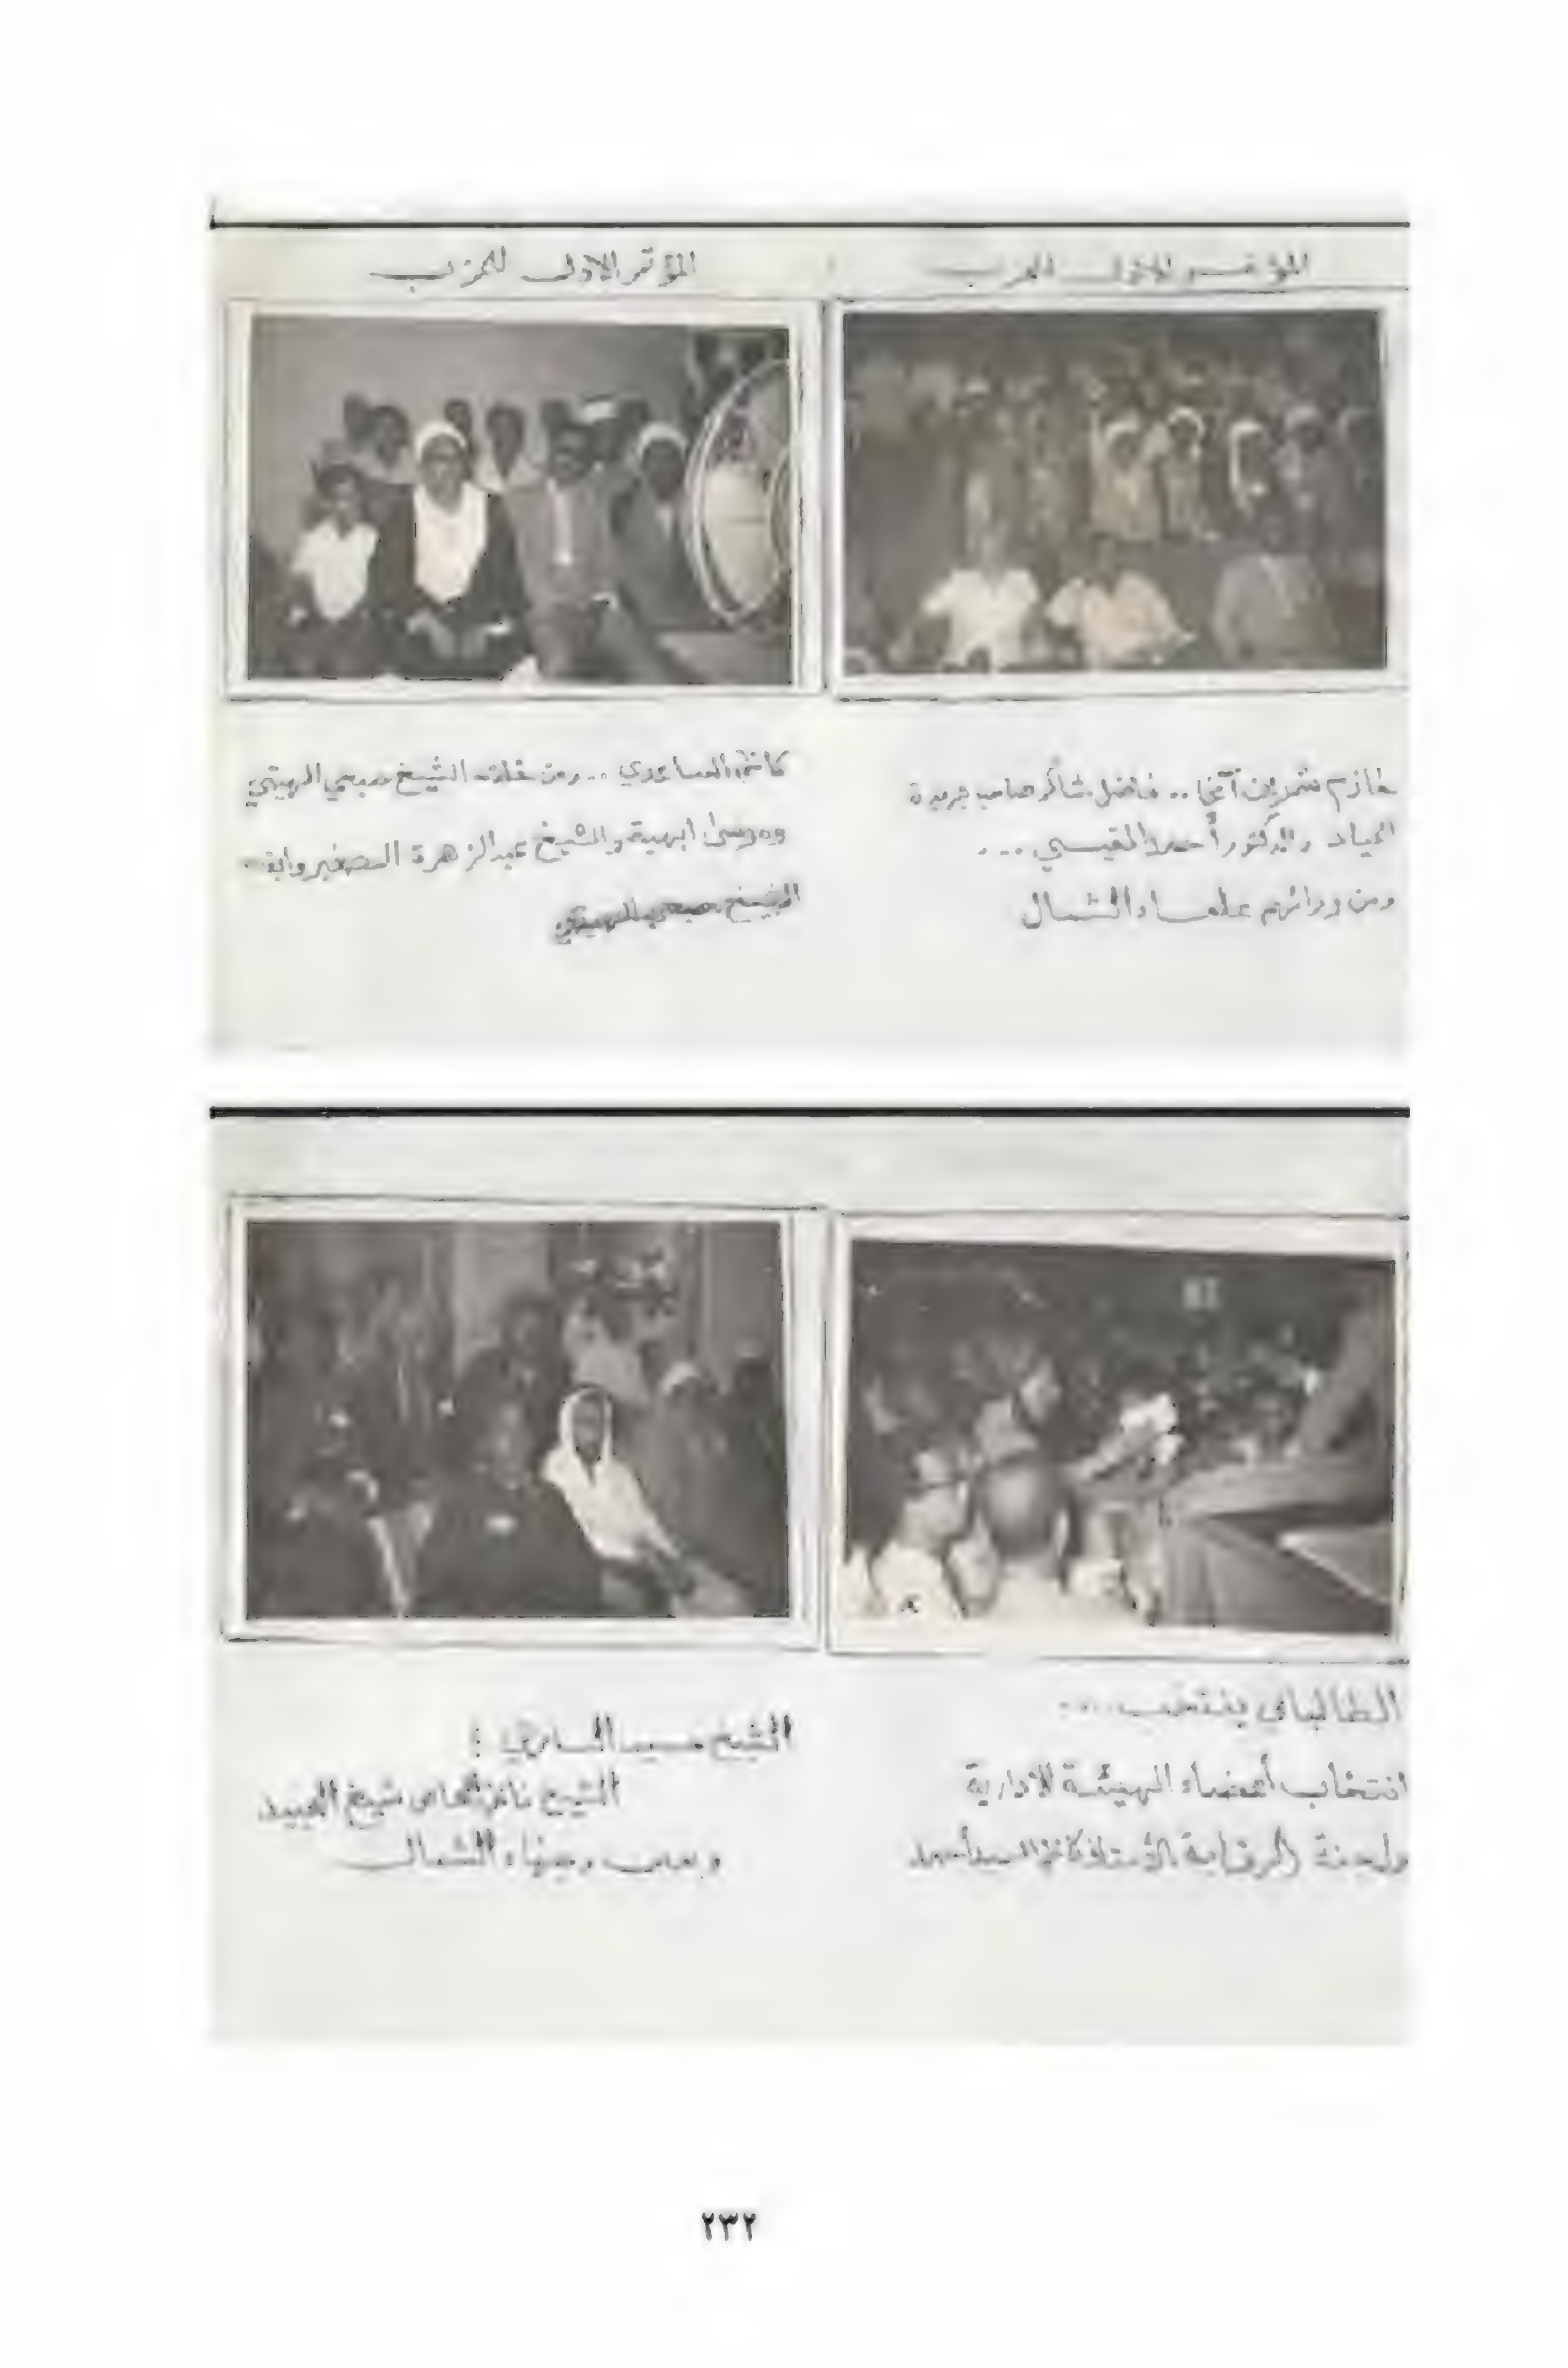 المؤتمر الاول للحزب
المؤتمر الاول للحزب
حازم شمدين آغا .. فاضل شاكر صاحب جريدة
الحياد والدكتور أحمد القيسي ...
ومن ورائهم علماء الشمال
كاظم الساعدي ... ومن خلفه الشيخ صبحي الهيتي
وموسى والشيخ عبد الزهرة الصغير
الشيخ صبحي الهيتي
الطالباني ينتخب ....
انتخاب أعضاء الهيئة الادارية
ولجنة الرقابة الأستاذ كاظم السيد أحمد
الشيخ
الشيخ شيخ العبيد
وبعض وجهاء الشمال
٢٣٢